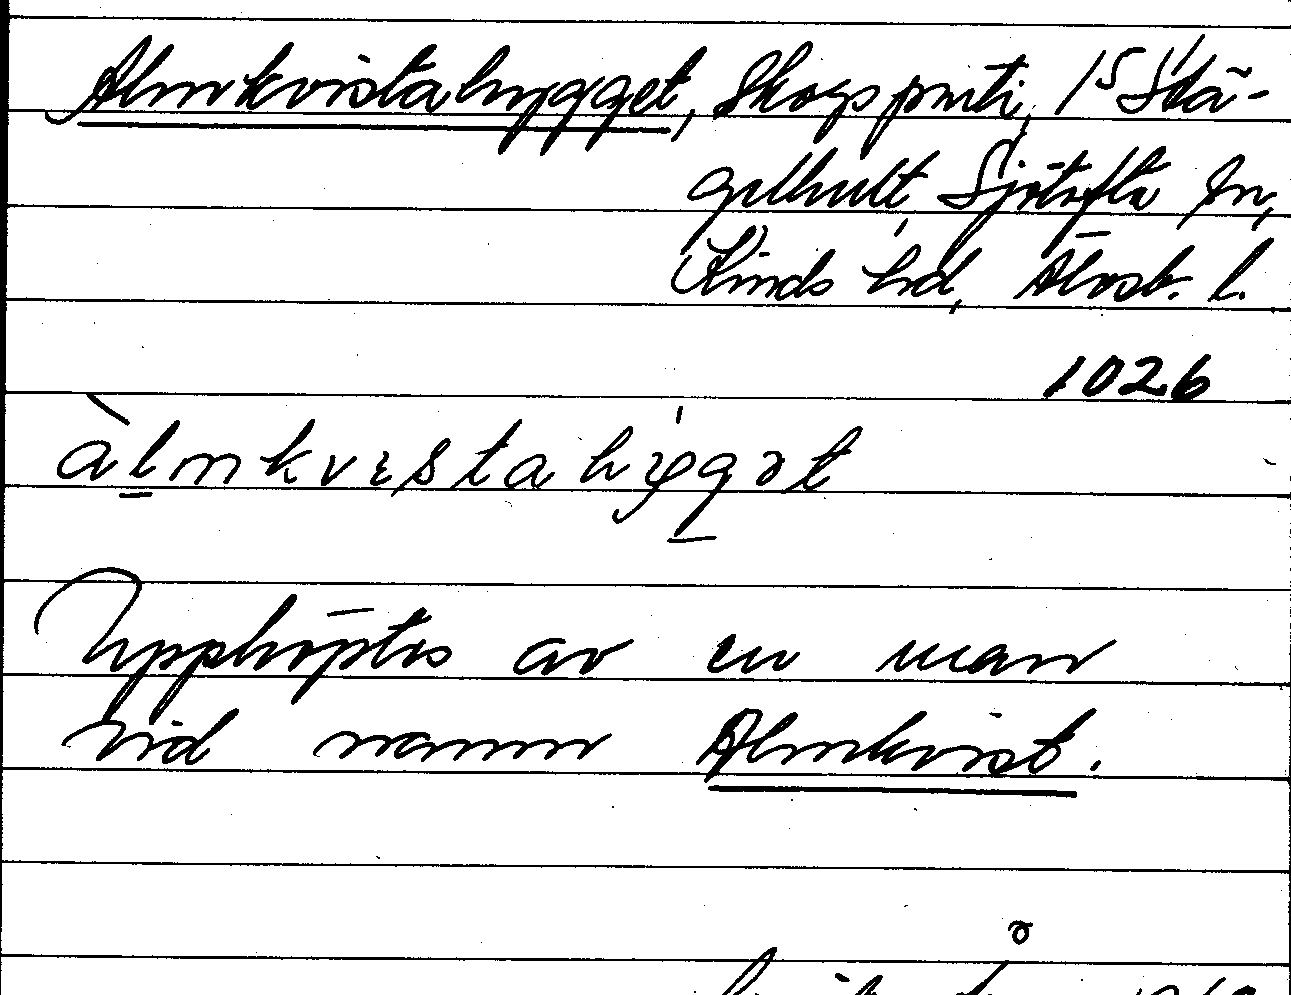 Almkvistahygget, Skogsparti, 1⁵ Stä-
gelhult, Sjötofta sn,
Kinds hd, Älvsb. l.
1026
àlmkvɪstahy̍gət
Upphöptes av en man
vid namn Almkvist.